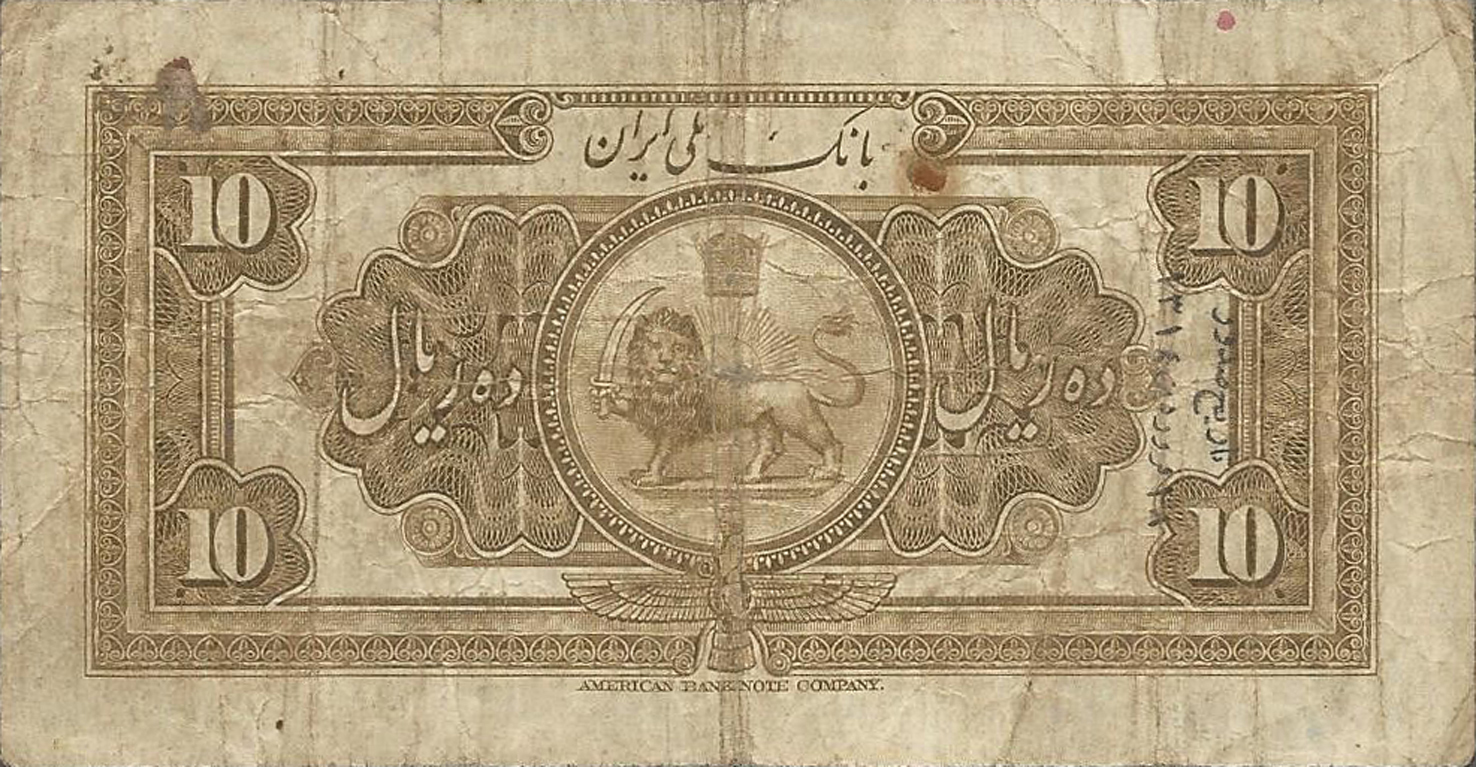 بانک ملی ایران
10
10
ده ریال
ده ریال
10
10
AMERICAN BANK NOTE COMPANY.